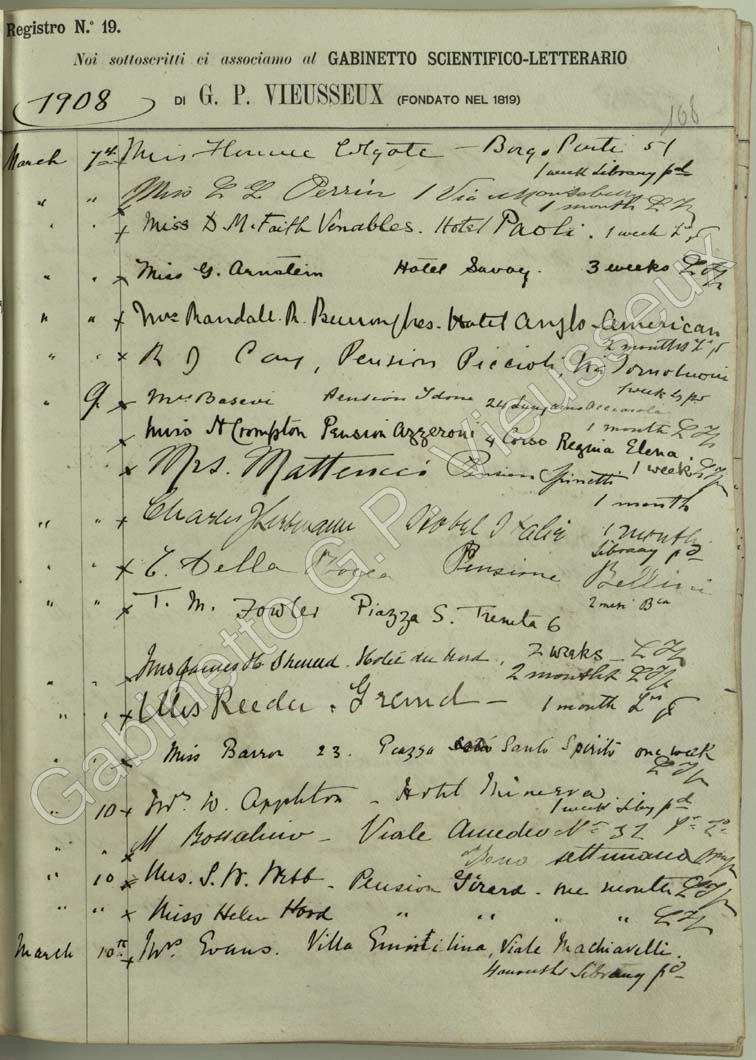 Registro N.° 19.
Noi sottoscritti ci associamo al GABINETTO SCIENTIFICO-LETTERARIO
1908
DI G. P. VIEUSSEUX (FONDATO NEL 1819)
168
March 7th Miss Florence Colgate – Borgo Pinti 51
1 week Library pd
" " Miss L L Perrin 1 Via Montebello
1 month
" " Miss D. M. Faith Venables. Hotel Paoli. 1 week
" " Miss G. Arnstein Hotel Savoy. 3 weeks
" " Mrs Randall R. Burroughes. Hotel Anglo-American
2 months
" " R J Cay, Pension Piccioli, Via Tornabuoni
1 week
" 9 Mrs Basevi Pension 24 Lungarno Acciaioli
1 month
Miss H Crompton Pension Azzeroni 4 Corso Regina Elena.
Mrs. Matteucci Pension Spinetti 1 week
1 month
" " Charles Hotel Italie 1 month
Library pd
" " C. Della Rocca Pensione Bellini
" " T. M. Fowler Piazza S. Trinita 6
2 mesi
" " Mrs James H Hotel du Nord, 2 weeks
2 months
" " Miss Reeder. Grand – 1 month
" " Miss Barron 23. Piazza Santo Spirito one week
" 10 Mrs W. Appleton – Hotel Minerva
1 week Liby pd
" " M – Viale Amedeo No 32
settimana
" 10 Mrs. S. W. Webb – Pension Girard – one month
" " Miss Helen Hood " " " "
March 10th Mrs Evans. Villa Viale Machiavelli.
4 months Library pd
Gabinetto G.P. Vieusseux